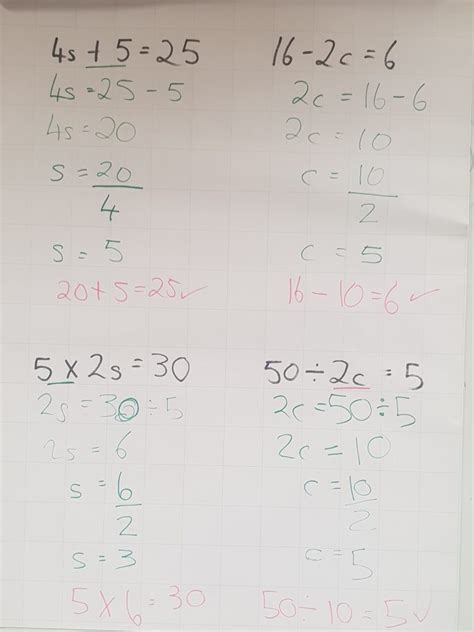 4s + 5 = 25
4s = 25 - 5
4s = 20
s = 20
4
s = 5
20 + 5 = 25 ✓
16 - 2c = 6
2c = 16 - 6
2c = 10
c = 10
2
c = 5
16 - 10 = 6 ✓
5 × 2s = 30
2s = 30 ÷ 5
2s = 6
s = 6
2
s = 3
5 × 6 = 30
50 ÷ 2c = 5
2c = 50 ÷ 5
2c = 10
c = 10
2
c = 5
50 ÷ 10 = 5 ✓